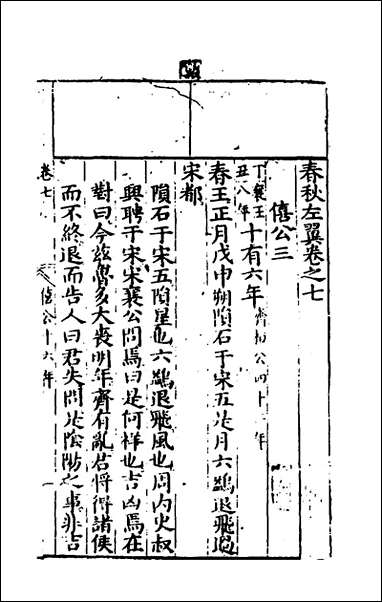 春秋左翼卷之七
僖公三
丁丑襄王八年十有六年齊桓公四十二年
春王正月戊申朔隕石于宋五是月六鷁退飛過
宋都
隕石于宋五隕星也六鷁退飛風也周内史叔
興聘于宋宋襄公問焉曰是何祥也吉凶焉在
對曰今玆魯多大喪明年齊有亂君將得諸侯
而不終退而告人曰君失問是陰陽之事非吉
卷七 僖公十六年